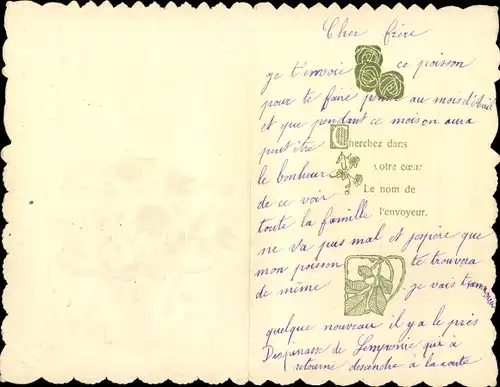 Cher frère
je t'envoie ce poisson
pour te faire au mois d'Avril
et que pendant ce mois on aura
peut être Cherchez dans
votre cœur
le bonheur
Le nom de
de ce voir
l'envoyeur.
toute la famille
ne va pas mal et j'espère que
mon poisson te trouvera
de même je vais
quelque nouveau il y a le
de qui a
retourné la